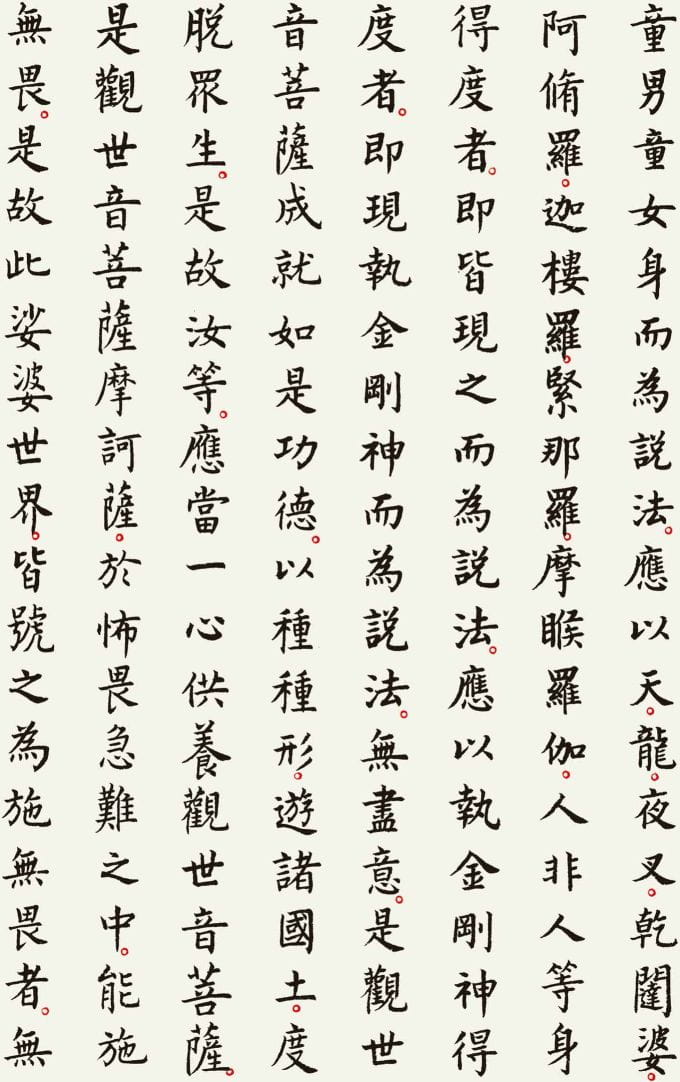 童男童女身而為説法。應以天。龍。夜叉。乾闥婆。
阿脩羅。迦樓羅。緊那羅。摩睺羅伽。人非人等身
得度者。即皆現之而為説法。應以執金剛神得
度者。即現執金剛神而為説法。無盡意。是觀世
音菩薩成就如是功德。以種種形。遊諸國土。度
脱眾生。是故汝等。應當一心供養觀世音菩薩。
是觀世音菩薩摩訶薩。於怖畏急難之中。能施
無畏。是故此娑婆世界。皆號之為施無畏者。無